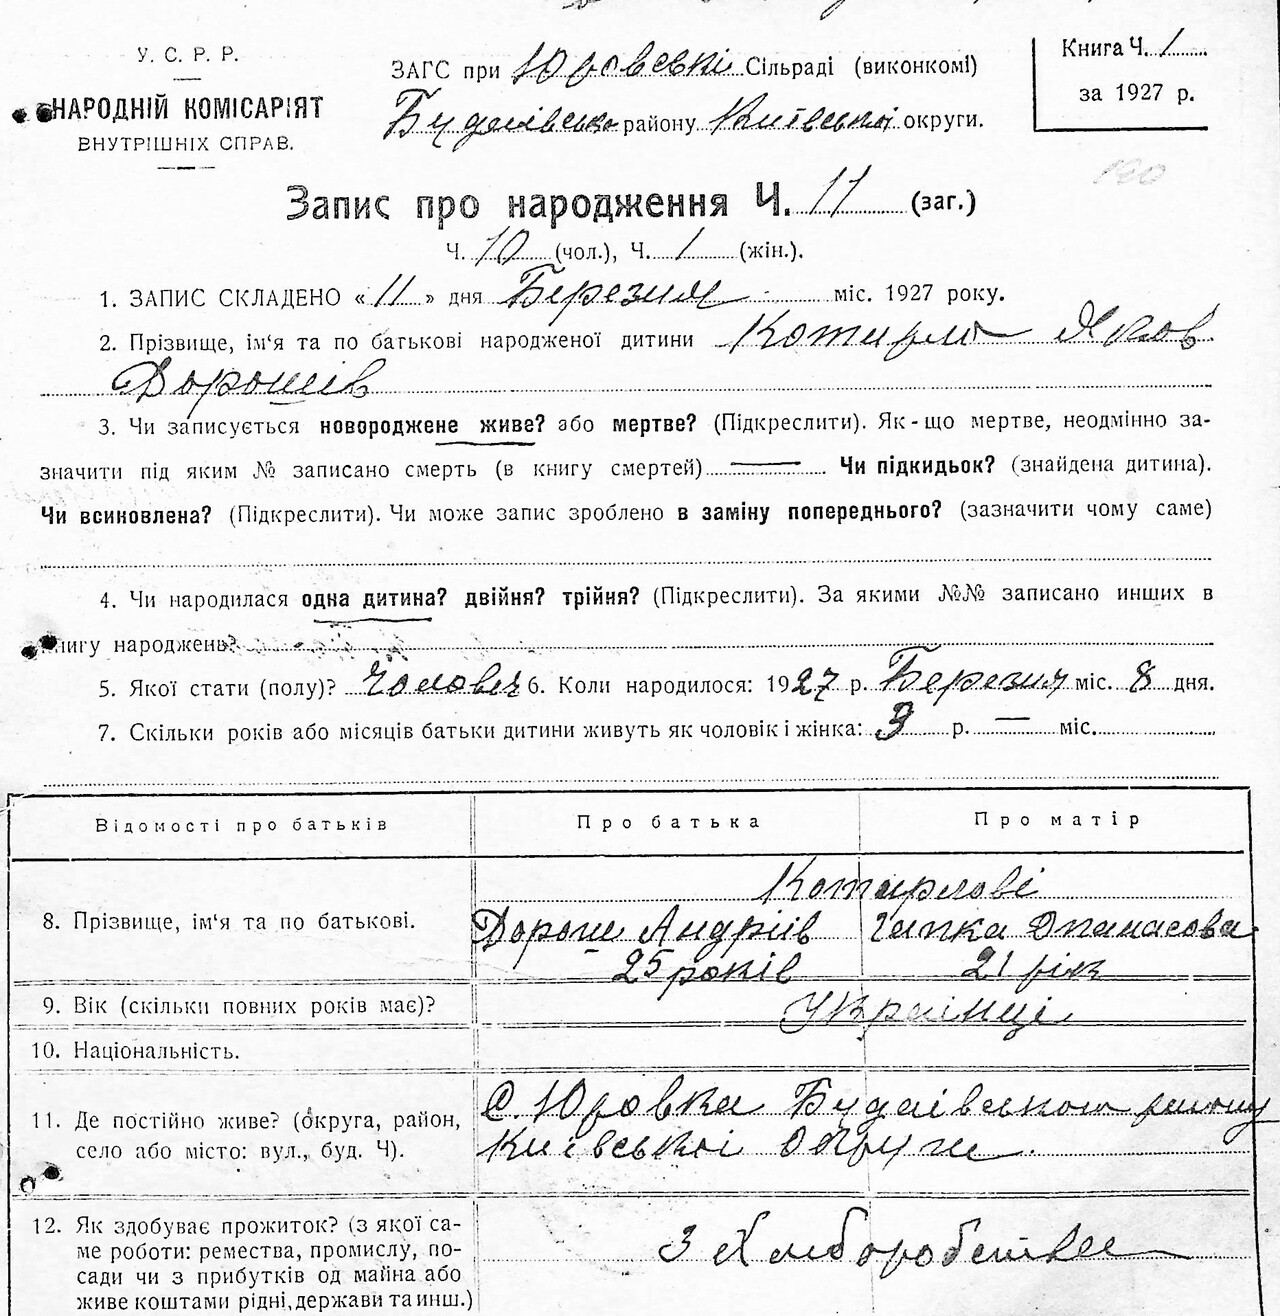 У. С. Р. Р.
НАРОДНІЙ КОМІСАРІЯТ
ВНУТРІШНІХ СПРАВ.
ЗАГС при Юровські Сільраді (виконкомі)
Будаївсько району Київської округи.
Книга Ч. 1
за 1927 р.
190
Запис про народження Ч. 11 (заг.)
Ч. 10 (чол.), Ч. 1 (жін.).
1. ЗАПИС СКЛАДЕНО « 11 » дня Березня міс. 1927 року.
2. Прізвище, ім‘я та по батькові народженої дитини Котирло Яков
Дорошів
3. Чи записується новороджене живе? або мертве? (Підкреслити). Як-що мертве, неодмінно за-
значити під яким № записано смерть (в книгу смертей) — Чи підкидьок? (знайдена дитина).
Чи всиновлена? (Підкреслити). Чи може запис зроблено в заміну попереднього? (зазначити чому саме)
4. Чи народилася одна дитина? двійня? трійня? (Підкреслити). За якими №№ записано инших в
книгу народжень?
5. Якої стати (полу)? Чоловіч 6. Коли народилося: 1927 р. Березня міс. 8 дня.
7. Скільки років або місяців батьки дитини живуть як чоловік і жінка: 3 р. — міс.
Відомості про батьків Про батька Про матір
Котирлові
8. Прізвище, ім‘я та по батькові. Дорош Андріїв Гапка Опанасова
25 років 21 рік
9. Вік (скільки повних років має)? Українці
10. Національність.
11. Де постійно живе? (округа, район, С. Юровка Будаївського району
село або місто: вул., буд. Ч). Київської Округи.
12. Як здобуває прожиток? (з якої са-
ме роботи: ремества, промислу, по- З Хліборобства
сади чи з прибутків од майна або
живе коштами рідні, держави та инш.)